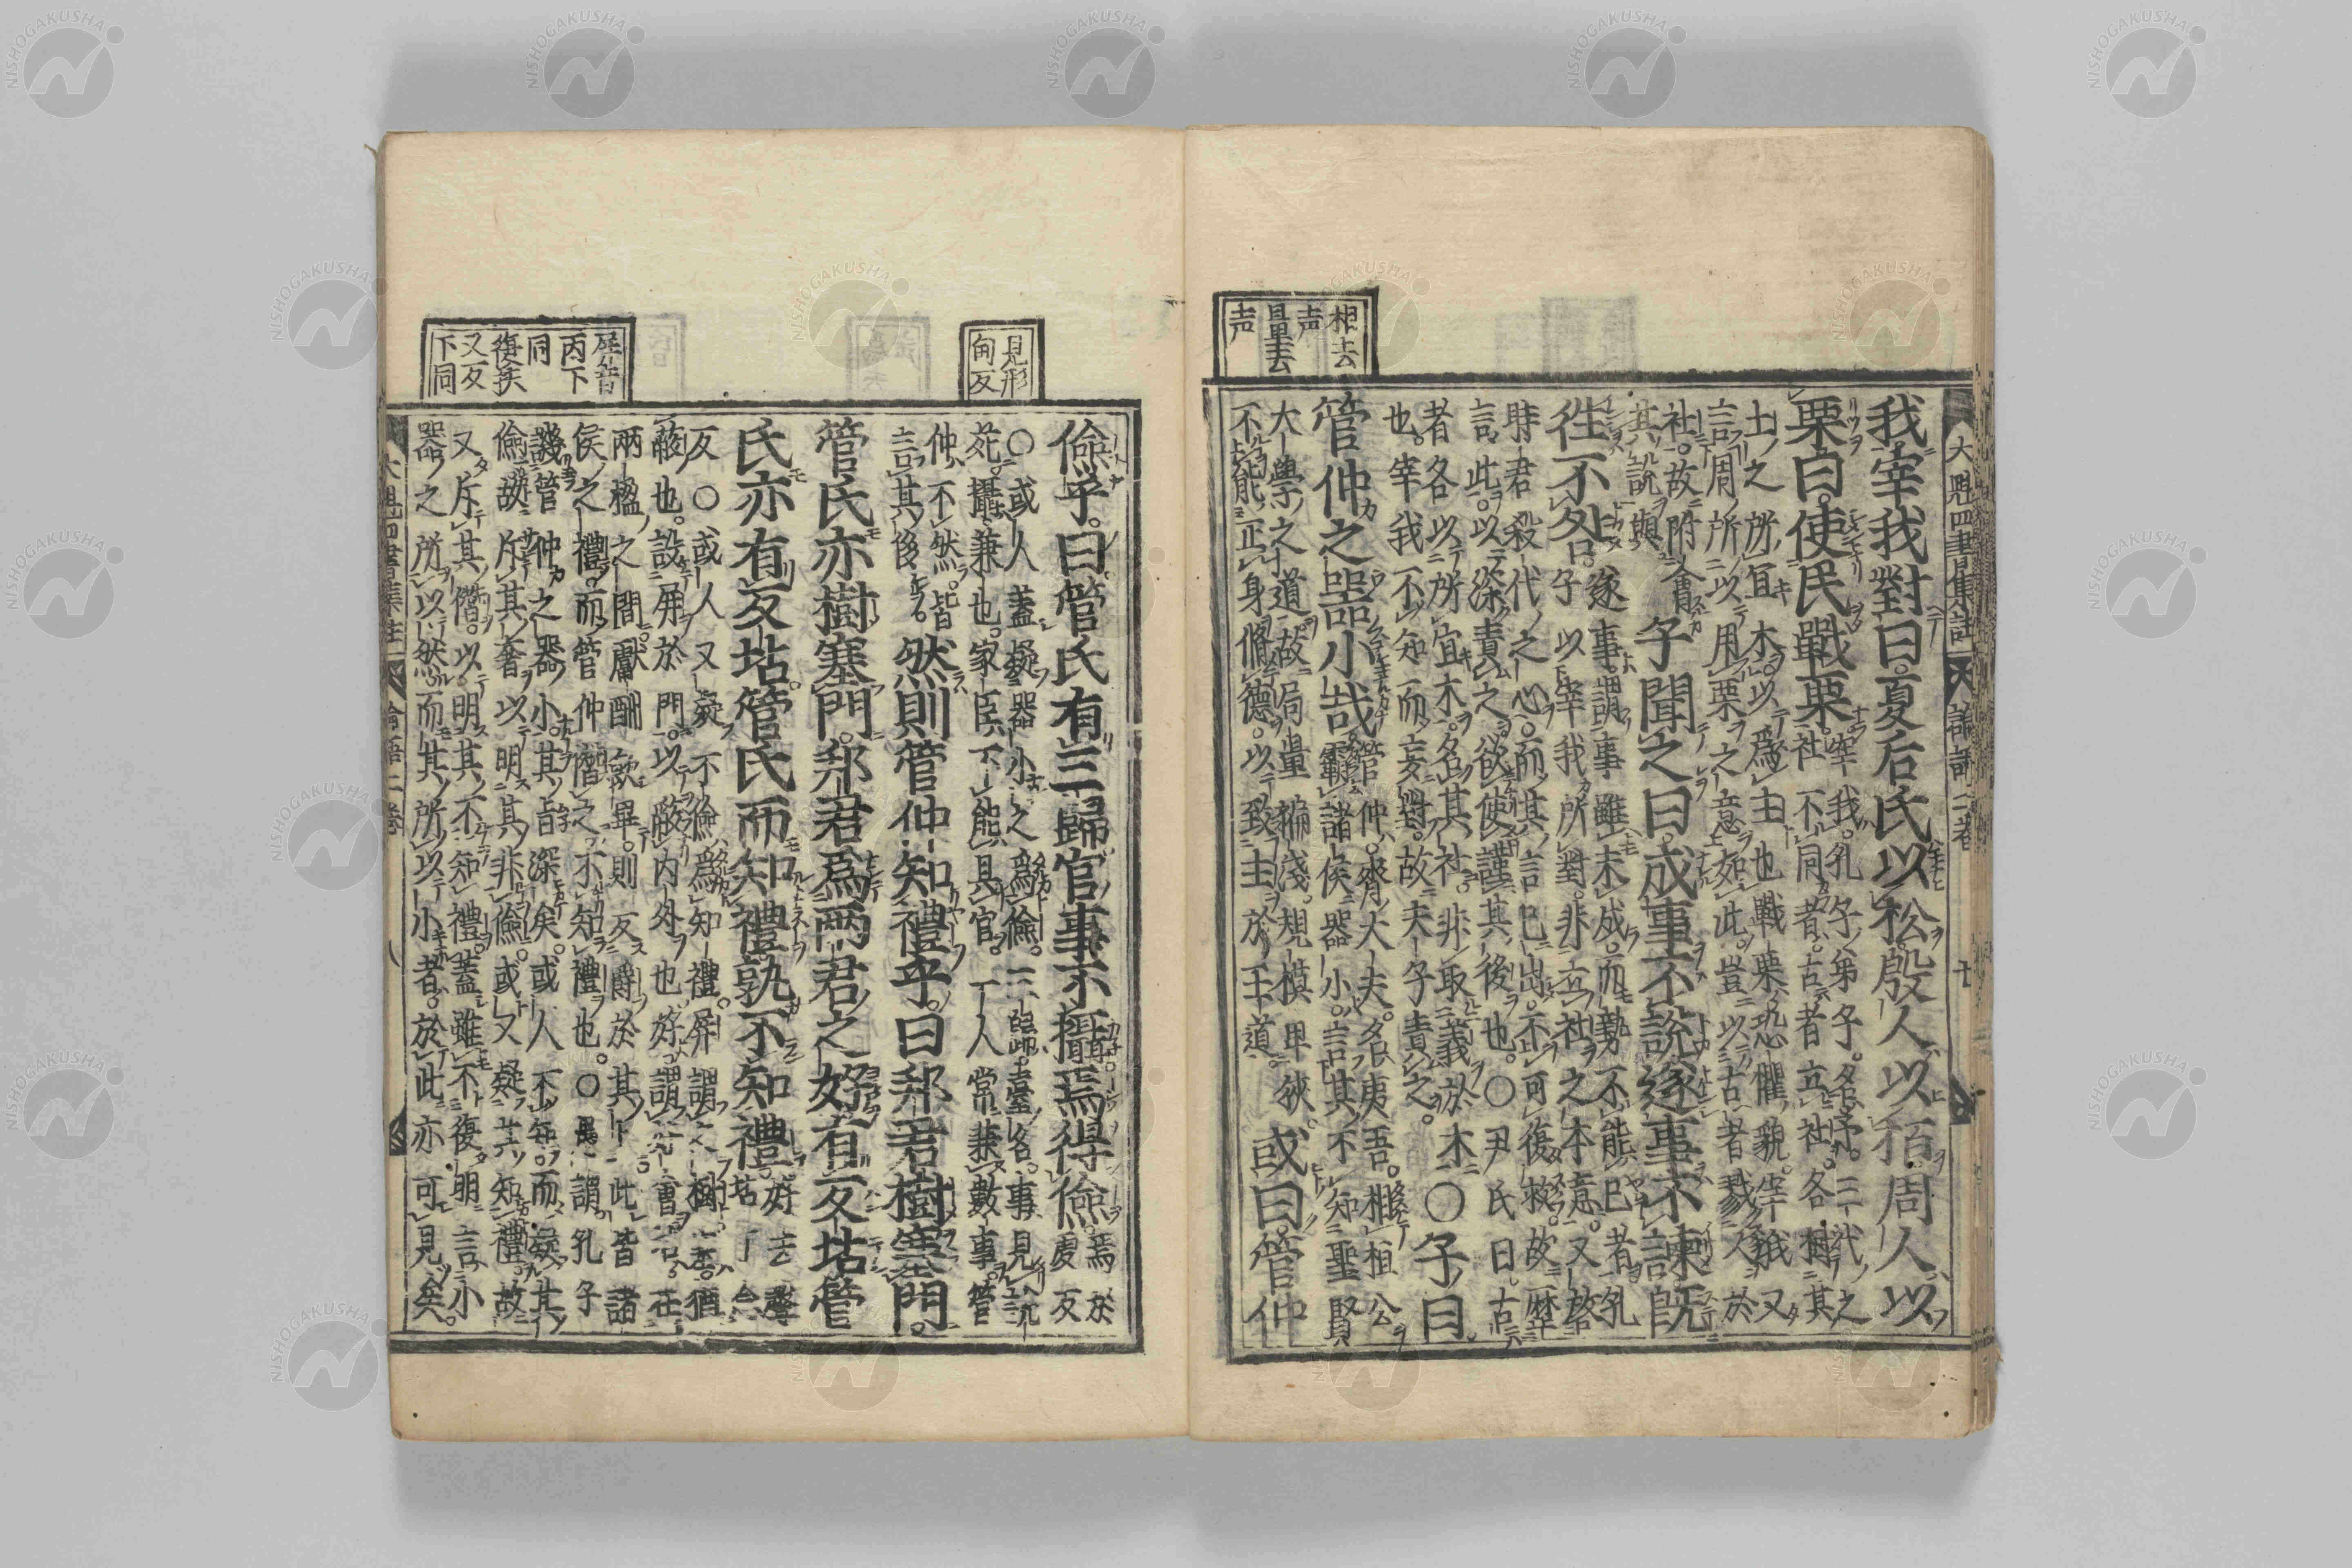 相去
声
量去
声
大魁四書集註 論語二卷 十
我宰我對曰。夏后氏以松。殷人以栢。周人以
栗。曰。使民戰栗。
宰我。孔子弟子。名予。三代之
社不同者。古者立社。各樹其
土之所宜木。以爲主也。戰栗恐懼貌。宰我又
言周所以用栗之意如此。豈以古者戮人於
社。故附會
其說與
子聞之曰。成事不說。遂事不諫。既
往不咎。
遂事。謂事雖未成。而勢不能已者。孔
子以宰我所對。非立社之本意。又啓
時君殺代之心。而其言已出。不可復救。故歷
言此。以深責之。欲使謹其後也。○尹氏曰古
者各以所宜木。名其社。非取義於木
也。宰我不知而妄對。故夫子責之。
○子曰。
管仲之器小哉
管仲。齊大夫。名夷吾。相桓公
霸諸侯。器小。言其不知聖賢
大學之道。故局量褊淺。規模卑狹
不能正身脩德。以致主於王道。
或曰管仲
見形
甸反
屏音
丙下
同
復扶
又反
下同
儉乎。曰。管氏有三歸官事不攝。焉得儉。
焉於
虔反
○或人蓋疑器小之爲儉。三歸。臺名。事見說
苑。攝。兼也。家臣不能具官。一人常兼數事。管
仲不然。皆
言其侈。
然則管仲知禮乎。曰邦君樹塞門。
管氏亦樹塞門。邦君爲兩君之好。有反坫。管
氏亦有反坫。管氏而知禮。孰不知禮。
好去聲
坫丁念
反○或人又疑不儉爲知禮。屏謂之樹。塞。猶
蔽也。設屏於門。以蔽內外也。好。謂好會。坫。在
兩楹之間。獻酬飲畢。則反爵於其上。此皆諸
侯之禮。而管仲僭之。不知禮也。○愚謂孔子
譏管仲之器小。其旨深矣。或人不知。而疑其
儉。故斥其奢。以明其非儉。或又疑其知禮。故
又斥其僭。以明其不知禮。蓋雖不復明言小
器之所以然。而其所以小者。於此亦可見矣。
大魁四書集註 論語二卷
NISHOGAKUSHA